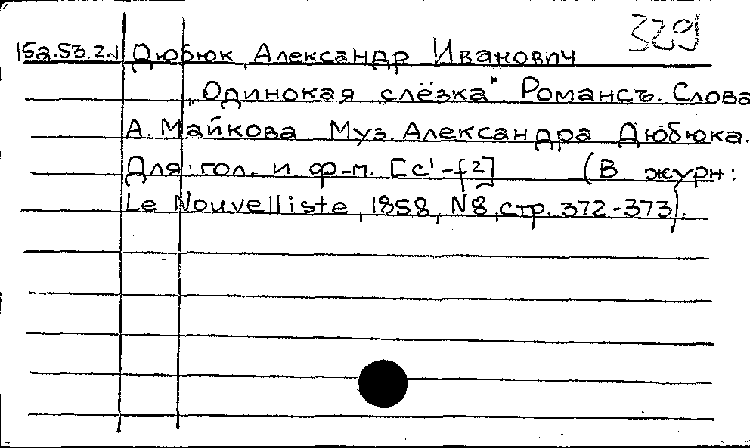 329
15a.53.2.1 Дюбюк, Александр Иванович
„Одинокая слёзка" Романсъ. Слова
А. Майкова Муз. Александра Дюбюка.
Для гол. и ф-п. [c¹-f²] (В журн:
Le Nouvelliste, 1858, N8, стр. 372-373).